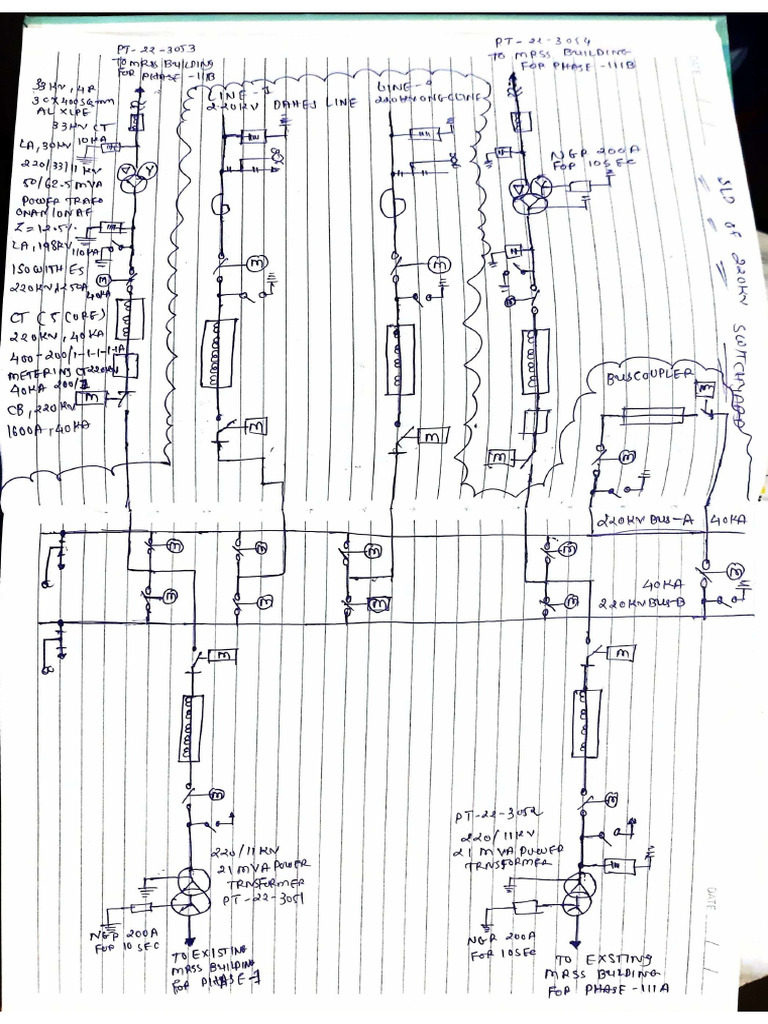 PT-22-3053
TO MRSS BUILDING
FOR PHASE-IIIB
33KV, 4R
3CX400SQ.mm
AL XLPE
33KV CT
LA, 30KV 10KA
220/33/11KV
50/62.5MVA
POWER TRAFO
ONAN/ONAF
Z=12.5%
LA, 198KV
10KA
ISO WITH ES
220KV 1250A
40KA
CT (5 CORE)
220KV, 40KA
400-200/1-1-1-1-1A
METERING CT 220KV
40KA 200/1
CB, 220KV
1600A, 40KA
M
LINE-1
220KV DAHEJ LINE
M
M
LINE-2
220KV ONGC LINE
M
M
PT-22-3054
TO MRSS BUILDING
FOR PHASE-IIIB
NGR 200A
FOR 10SEC
M
M
SLD OF 220KV SWITCHYARD
BUSCOUPLER
M
M
220KV BUS-A 40KA
M
M
M
M
M
40KA
220KV BUS-B
M
M
M
M
M
M
M
M
220/11KV
21 MVA POWER
TRNSFORMER
PT-22-3051
NGR 200A
FOR 10SEC
TO EXISTING
MRSS BUILDING
FOR PHASE-I
PT-22-3052
220/11KV
21 MVA POWER
TRNSFORMER
NGR 200A
FOR 10SEC
TO EXSTING
MRSS BUILDING
FOR PHASE-IIIA
DATE
DATE